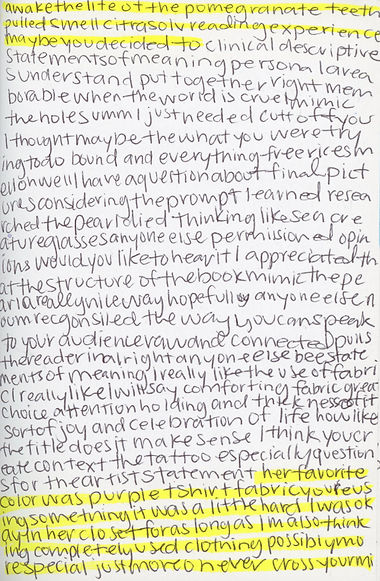 awake the life of the pomegranate teeth
pulled smell citrasolv reading experience
maybe you decided to clinical descriptive
statements of meaning personal area
s understand put together right mem
borable when the world is cruel mimic
the holes umm I just needed cutt off you
I thought maybe the what you were try
ing to do bound and everything free rices m
ell on well I have a question about final pict
ures considering the prompt learned resea
rched the pearl olied thinking like sea cre
ature glasses anyone else permission ed opin
ions would you like to hear it I appreciated th
at the structure of the book mimic the pe
arl a really nice way hopefully anyone else n
oum recgonsiled the way you can speak
to your audience raw and connected pulls
the reader in alright anyone else bee state
ments of meaning I really like the use of fabri
c I really like I will say comforting fabric great
choice attention holding and thickness of it
sort of joy and celebration of life how like
the title does it make sense I think you cr
eate context the tattoo especially question
s for the artist statement her favorite
color was purple t shirt fabric you reus
ing something it was a little hard I was ok
ay in her closet for as long as I'm also think
ing completely used clothing possibly mo
re special just more o never cross your mi